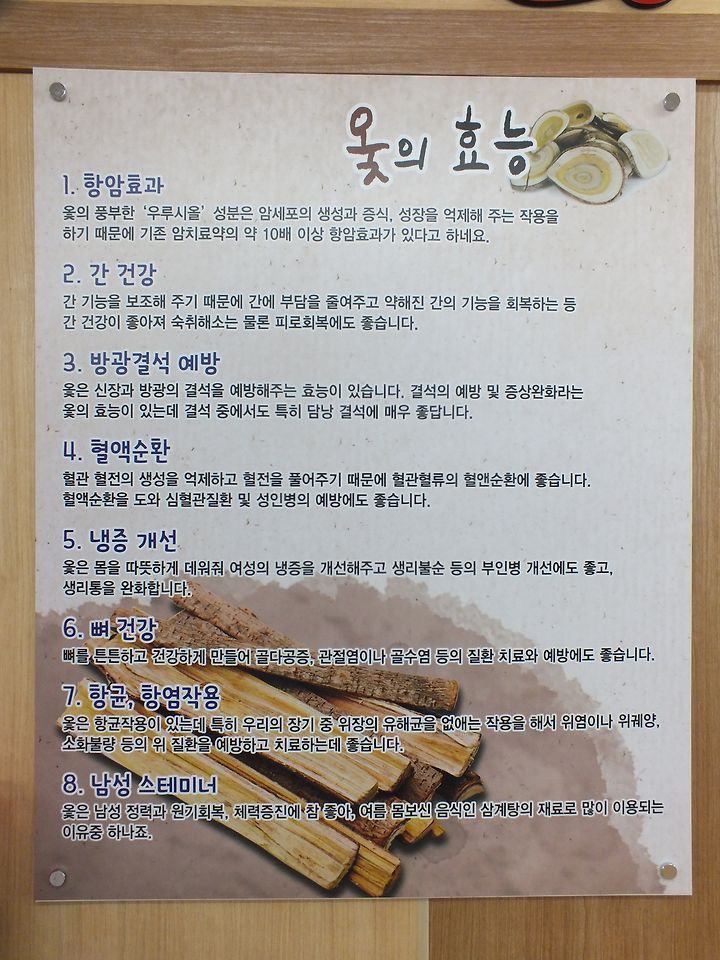 옻의 효능
1. 항암효과
옻의 풍부한 '우루시올' 성분은 암세포의 생성과 증식, 성장을 억제해 주는 작용을
하기 때문에 기존 암치료약의 약 10배 이상 항암효과가 있다고 하네요.
2. 간 건강
간 기능을 보조해 주기 때문에 간에 부담을 줄여주고 약해진 간의 기능을 회복하는 등
간 건강이 좋아져 숙취해소는 물론 피로회복에도 좋습니다.
3. 방광결석 예방
옻은 신장과 방광의 결석을 예방해주는 효능이 있습니다. 결석의 예방 및 증상완화라는
옻의 효능이 있는데 결석 중에서도 특히 담낭 결석에 매우 좋답니다.
4. 혈액순환
혈관 혈전의 생성을 억제하고 혈전을 풀어주기 때문에 혈관혈류의 혈앤순환에 좋습니다.
혈액순환을 도와 심혈관질환 및 성인병의 예방에도 좋습니다.
5. 냉증 개선
옻은 몸을 따뜻하게 데워줘 여성의 냉증을 개선해주고 생리불순 등의 부인병 개선에도 좋고,
생리통을 완화합니다.
6. 뼈 건강
뼈를 튼튼하고 건강하게 만들어 골다공증, 관절염이나 골수염 등의 질환 치료와 예방에도 좋습니다.
7. 항균, 항염작용
옻은 항균작용이 있는데 특히 우리의 장기 중 위장의 유해균을 없애는 작용을 해서 위염이나 위궤양,
소화불량 등의 위 질환을 예방하고 치료하는데 좋습니다.
8. 남성 스테미너
옻은 남성 정력과 원기회복, 체력증진에 참 좋아, 여름 몸보신 음식인 삼계탕의 재료로 많이 이용되는
이유중 하나죠.